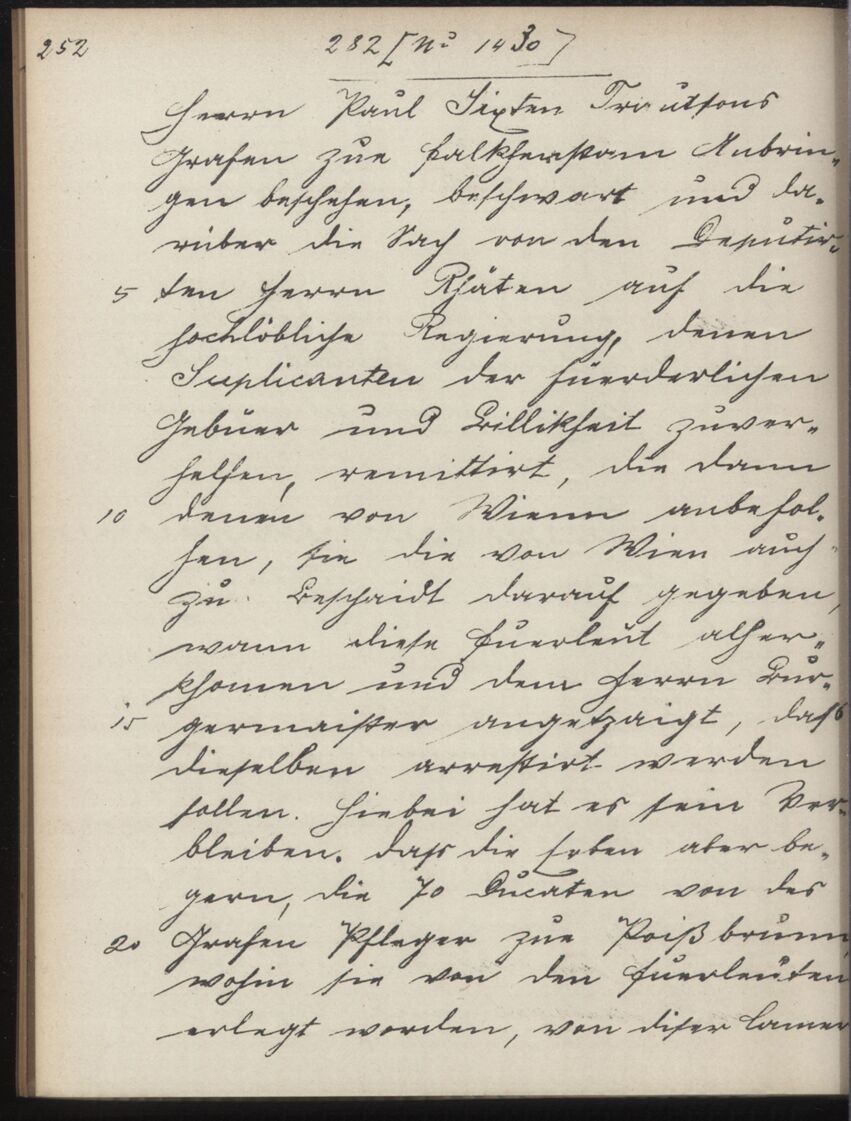 252 282 [No 1430]
Herrn Paul Sixten Trautsons
Grafen zue Falkhenstam Anbrin-
gen beschehen, beschwart und da-
rüber die Sach von den Deputir-
5 ten Herrn Rhäten auf die
hochlöbliche Regierung, denen
Suplicanten der fuerderlichen
Gebüer und Billikheit zuver-
helfen, remittirt, die dann
10 denen von Wienn anbefol-
hen, sie die von Wien auch
zu Beschaidt darauf gegeben,
wann diese Fuerleut alher-
khomen und dem Herrn Bur-
15 germaister angetzaigt, dass
dieselben arrestirt werden
sollen. Hiebei hat es sein Ver-
bleiben. Dass die Erben aber be-
gern, die 70 Ducaten von des
20 Grafen Pfleger zue Poißbrunn,
wohin sie von den Fuerleuten
erlegt worden, von diser Camer